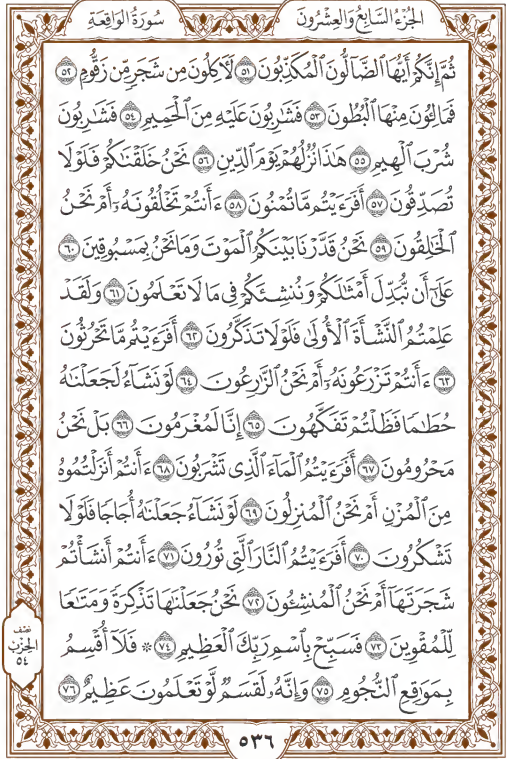 سُورَةُ الوَاقِعَةِ
الجُزْءُ السَّابِعُ وَالعِشْرُونَ
ثُمَّ إِنَّكُمْ أَيُّهَا ٱلضَّآلُّونَ ٱلْمُكَذِّبُونَ ٥١ لَأٓكِلُونَ مِن شَجَرٍ مِّن زَقُّومٍ ٥٢
فَمَالِـُٔونَ مِنْهَا ٱلْبُطُونَ ٥٣ فَشَٰرِبُونَ عَلَيْهِ مِنَ ٱلْحَمِيمِ ٥٤ فَشَٰرِبُونَ
شُرْبَ ٱلْهِيمِ ٥٥ هَٰذَا نُزُلُهُمْ يَوْمَ ٱلدِّينِ ٥٦ نَحْنُ خَلَقْنَٰكُمْ فَلَوْلَا
تُصَدِّقُونَ ٥٧ أَفَرَءَيْتُم مَّا تُمْنُونَ ٥٨ ءَأَنتُمْ تَخْلُقُونَهُۥٓ أَمْ نَحْنُ
ٱلْخَٰلِقُونَ ٥٩ نَحْنُ قَدَّرْنَا بَيْنَكُمُ ٱلْمَوْتَ وَمَا نَحْنُ بِمَسْبُوقِينَ ٦٠
عَلَىٰٓ أَن نُّبَدِّلَ أَمْثَٰلَكُمْ وَنُنشِئَكُمْ فِى مَا لَا تَعْلَمُونَ ٦١ وَلَقَدْ
عَلِمْتُمُ ٱلنَّشْأَةَ ٱلْأُولَىٰ فَلَوْلَا تَذَكَّرُونَ ٦٢ أَفَرَءَيْتُم مَّا تَحْرُثُونَ
٦٣ ءَأَنتُمْ تَزْرَعُونَهُۥٓ أَمْ نَحْنُ ٱلزَّٰرِعُونَ ٦٤ لَوْ نَشَآءُ لَجَعَلْنَٰهُ
حُطَٰمًا فَظَلْتُمْ تَفَكَّهُونَ ٦٥ إِنَّا لَمُغْرَمُونَ ٦٦ بَلْ نَحْنُ
مَحْرُومُونَ ٦٧ أَفَرَءَيْتُمُ ٱلْمَآءَ ٱلَّذِى تَشْرَبُونَ ٦٨ ءَأَنتُمْ أَنزَلْتُمُوهُ
مِنَ ٱلْمُزْنِ أَمْ نَحْنُ ٱلْمُنزِلُونَ ٦٩ لَوْ نَشَآءُ جَعَلْنَٰهُ أُجَاجًا فَلَوْلَا
تَشْكُرُونَ ٧٠ أَفَرَءَيْتُمُ ٱلنَّارَ ٱلَّتِى تُورُونَ ٧١ ءَأَنتُمْ أَنشَأْتُمْ
شَجَرَتَهَآ أَمْ نَحْنُ ٱلْمُنشِـُٔونَ ٧٢ نَحْنُ جَعَلْنَٰهَا تَذْكِرَةً وَمَتَٰعًا
لِّلْمُقْوِينَ ٧٣ فَسَبِّحْ بِٱسْمِ رَبِّكَ ٱلْعَظِيمِ ٧٤ ۞ فَلَآ أُقْسِمُ
بِمَوَٰقِعِ ٱلنُّجُومِ ٧٥ وَإِنَّهُۥ لَقَسَمٌ لَّوْ تَعْلَمُونَ عَظِيمٌ ٧٦
نصف
الحزب
٥٤
٥٣٦